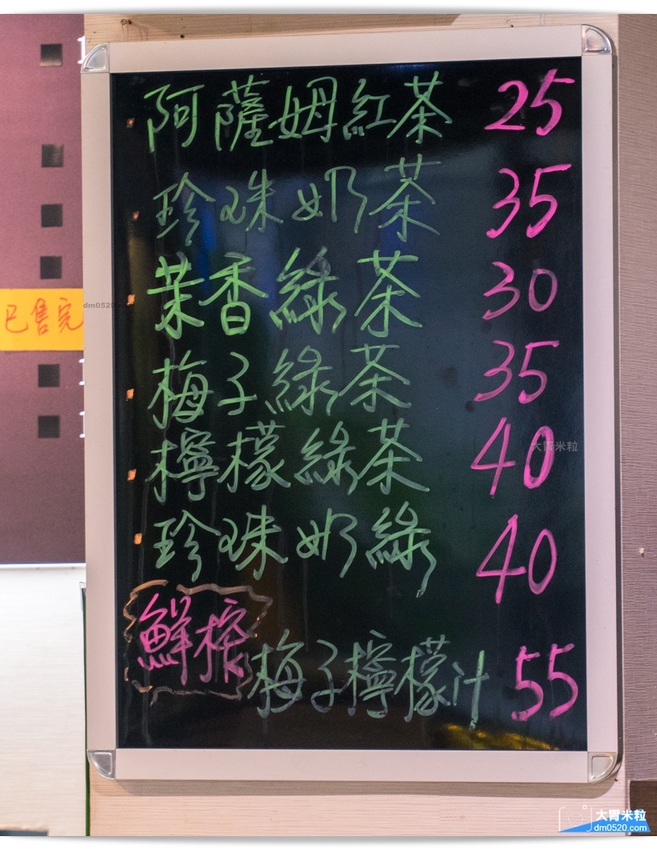 阿薩姆紅茶 25
珍珠奶茶 35
茉香綠茶 30
梅子綠茶 35
檸檬綠茶 40
珍珠奶綠 40
鮮榨 梅子檸檬汁 55
已售完
dm0520
大胃米粒
大胃米粒
dm0520.com